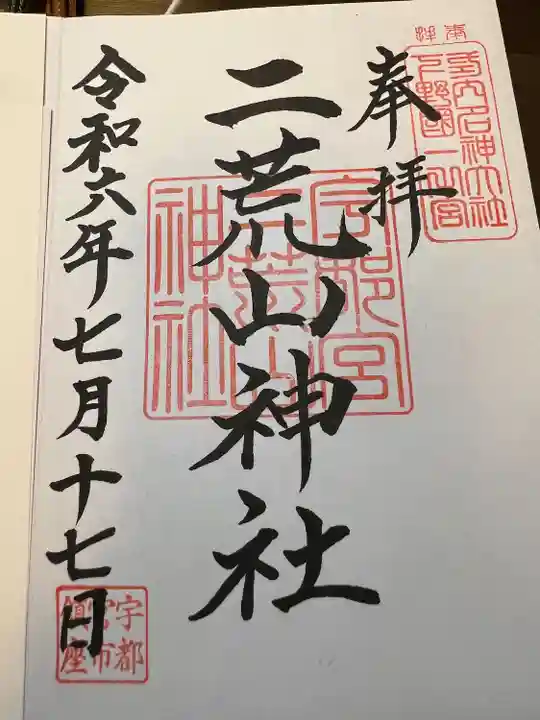 奉拝
奉拝
式内名神大社
下野國一之宮
二荒山神社
宇都宮
二荒山
神社
令和六年七月十七日
宇都
宮市
鎮座